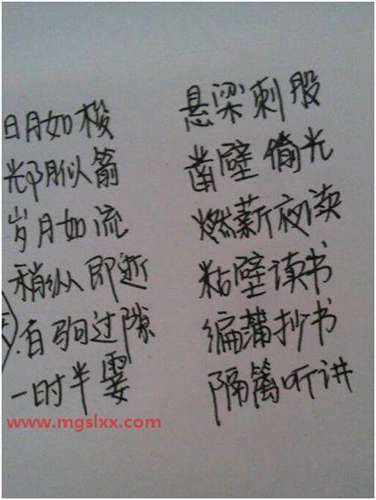 日月如梭
光阴似箭
岁月如流
稍纵即逝
白驹过隙
一时半霎
悬梁刺股
凿壁偷光
燃薪夜读
粘壁读书
编蒲抄书
隔篱听讲
www.mgslxx.com